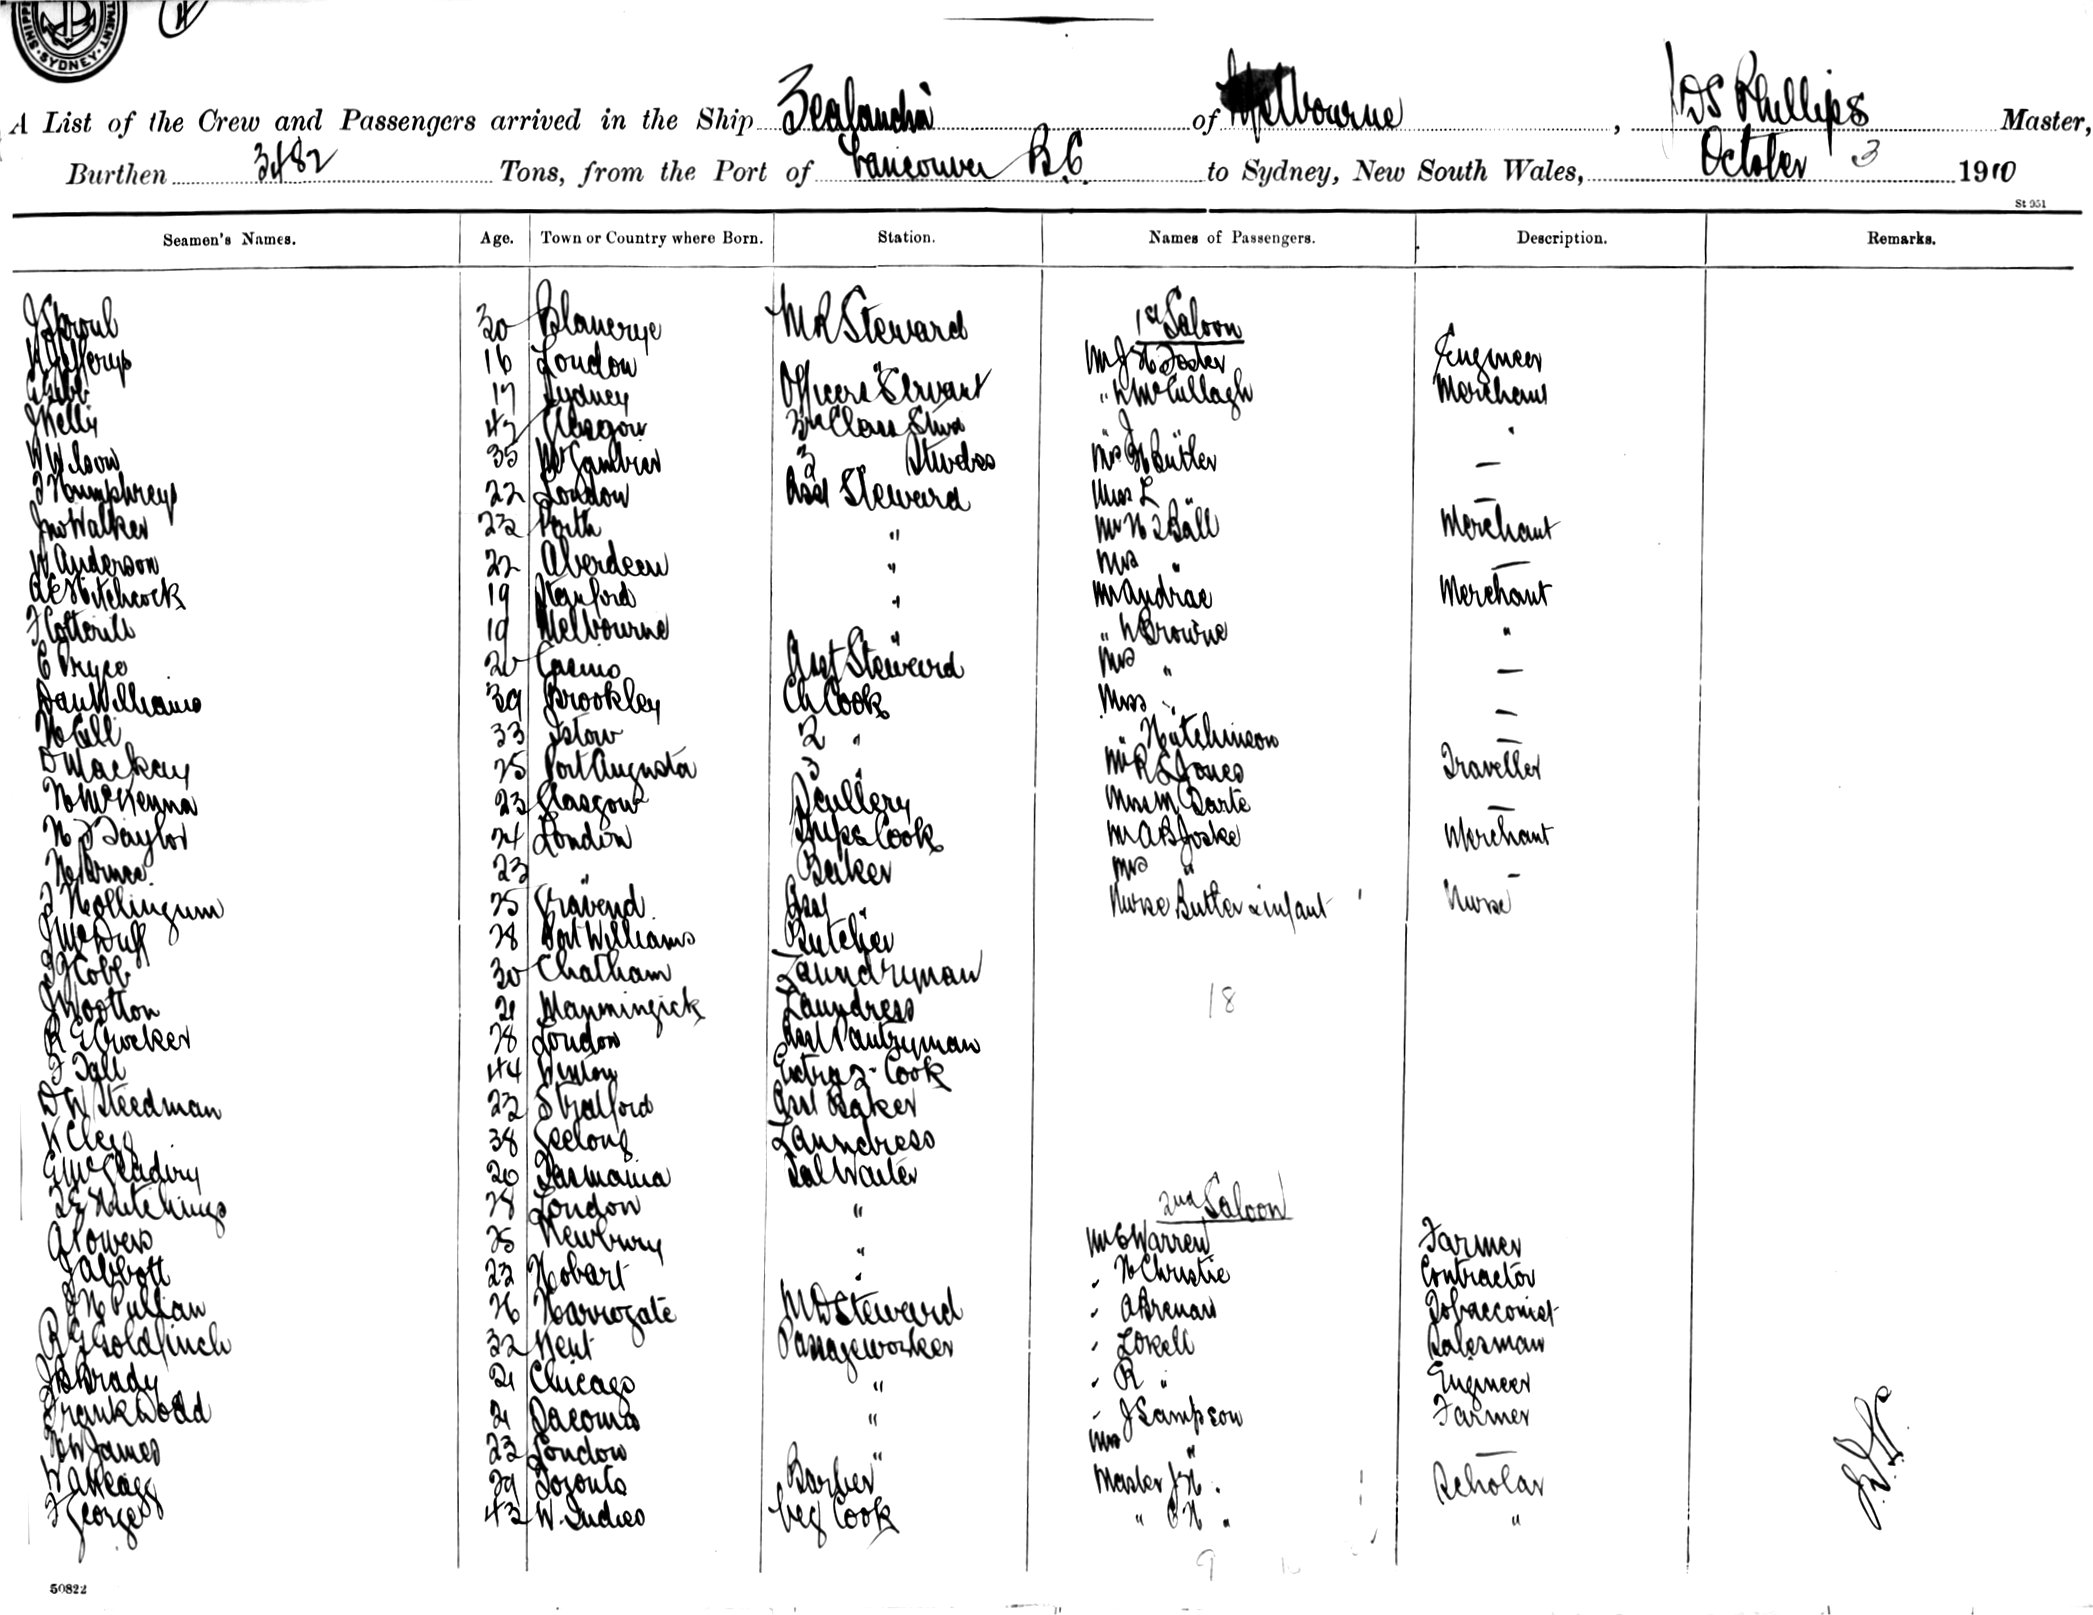 SYDNEY
A List of the Crew and Passengers arrived in the Ship Zealandia of Melbourne, JDS Phillips Master,
Burthen 3482 Tons, from the Port of Vancouver B.C. to Sydney, New South Wales, October 3 1910
St 951
Seamen's Names. Age. Town or Country where Born. Station. Names of Passengers. Description. Remarks.
J Sproul 30 MR Steward 1st Saloon
16 London " Mr J H Foster Engineer
17 Sydney Officers Servant " McCullagh Merchant
J Kelly 43 Glasgow 3rd Class Stwd " "
W Wilson 35 Mt Gambier 3 " Stwdss Mrs Butler —
J Humphreys 22 London Asst Steward Miss L " —
Jno Walker 22 Perth " Mr H J Ball Merchant
W Anderson 22 Aberdeen " Mrs " —
A E Hitchcock 19 " Mr Andrae Merchant
F Cotterill 19 Melbourne " " Browne "
E Pryce 20 Casino Asst Steward Mrs " —
Dan Williams 39 Brookley Ch Cook Miss " —
H Call 33 2 " " Hutchinson —
D Mackay 25 Port Augusta 3 " Mr R S Jones Traveller
H McKenna 23 Glasgow Scullery Miss M Darte —
H J Taylor 24 London Ships Cook Mr A B Joske Merchant
H Bruce 23 " Baker Mrs " —
F Hollingum 25 Gravend Asst " Nurse Butler & infant Nurse
J McDuff 28 Port Williams Butcher
J Cobb 30 Chatham Laundryman
J Wootton 21 Laundress 18
R E Crocker 28 London Asst Pantryman
F Tall 44 Winton Extra 2 Cook
D W Steedman 22 Stratford Asst Baker
K Clegg 38 Geelong Laundress
20 Tasmania Sal Waiter
Hutchings 28 London " 2nd Saloon
A Powers 25 Newbury " Mr E Warren Farmer
J Abbott 22 Hobart " " H Christie Contractor
J H Pullan 26 Harrogate MD Steward " A Brenan Tobacconist
R G Goldfinch 32 Kent Passageworker " Lokell Salesman
J B Brady 21 Chicago " " R " Engineer
Frank Dodd 21 Tacoma " " J Sampson Farmer
H W James 22 London " Mrs " —
29 Toronto Barber Master J H " Scholar
F George 43 W. Indies Veg Cook " C H " "
9
50822